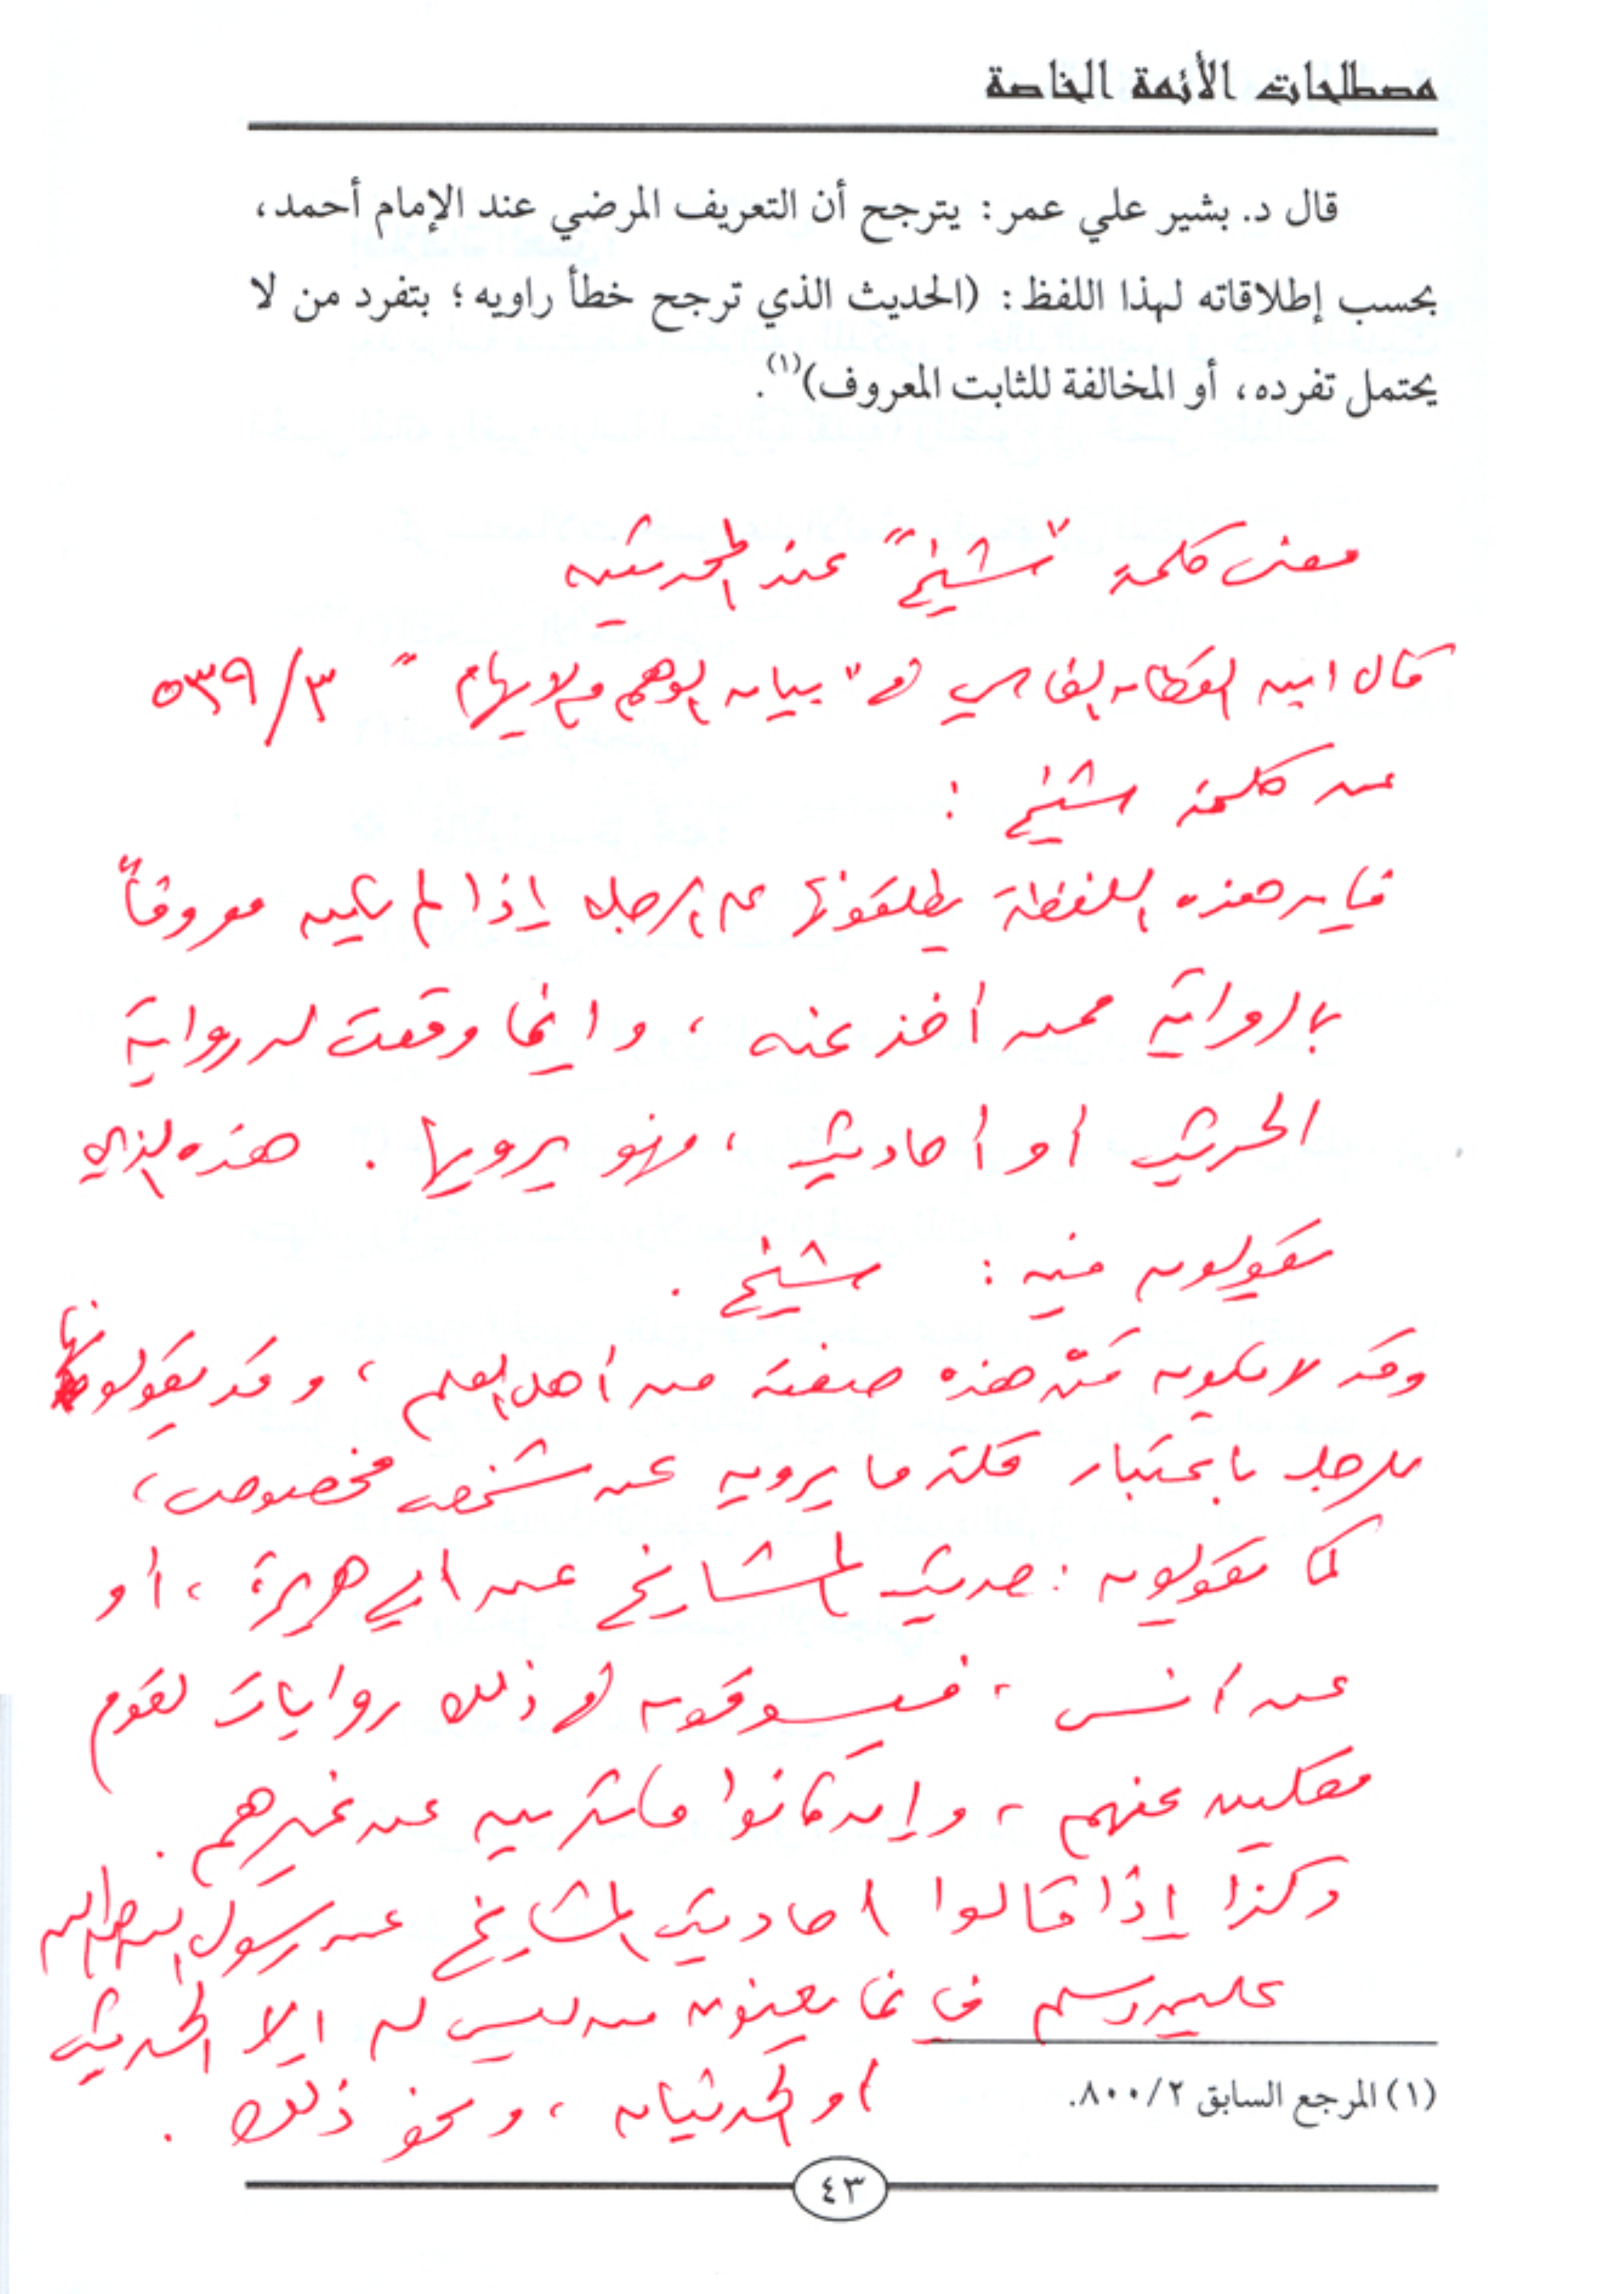 مصطلحات الأئمة الخاصة
قال د. بشير علي عمر: يترجح أن التعريف المرضي عند الإمام أحمد،
بحسب إطلاقاته لهذا اللفظ: (الحديث الذي ترجح خطأ راويه؛ بتفرد من لا
يحتمل تفرده، أو المخالفة للثابت المعروف)(١).
معنى كلمة "شيخ" عند المحدثين
قال ابن القطان الفاسي في "بيان الوهم والإيهام" ٥٣٩/٣
عن كلمة شيخ:
فإن هذه اللفظة يطلقونها على الرجل إذا لم يكن معروفاً
بالرواية ممن أخذ عنه، وإنما وقعت له رواية
الحديث أو أحاديث، فهو يرويها. هذه الذي
يقولون فيه: شيخ.
وقد لا يكون من هذه صفته من أهل العلم، وقد يقولونها
للرجل باعتبار قلة ما يرويه عن شخص مخصوص،
كما يقولون: حديث المشايخ عن أبي هريرة، أو
عن أنس، فيسوقون في ذلك روايات لقوم
مقلين عنهم، وإن كانوا مكثرين عن غيرهم.
وكذا إذا قالوا أحاديث المشايخ عن رسول الله صلى الله
عليه وسلم فإنما يعنون من ليس له إلا الحديث
أو الحديثان، ونحو ذلك.
(١) المرجع السابق ٨٠٠/٢.
٤٣